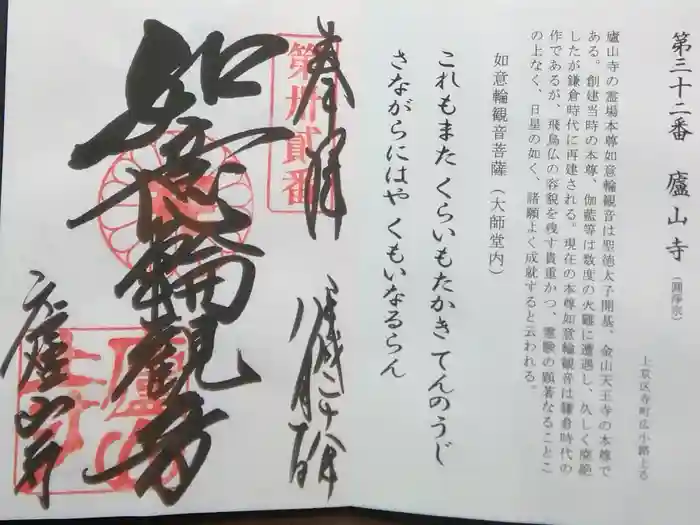 第三十二番 廬山寺（圓浄宗）
上京区寺町広小路上る
廬山寺の霊場本尊如意輪観音は聖徳太子開基、金山天王寺の本尊で
ある。創建当時の本尊、伽藍等は数度の火難に遭遇し、久しく廃絶
したが鎌倉時代に再建される。現在の本尊如意輪観音は鎌倉時代の
作であるが、飛鳥仏の容貌を残す貴重かつ、霊験の顕著なることこ
の上なく、日星の如く、諸願よく成就すると云われる。
如意輪観音菩薩（大師堂内）
これもまた くらいもたかき てんのうじ
さながらにはや くもいなるらん
奉拝
第卅貳番
平成二十八年
八月
如意輪観音
廬山寺